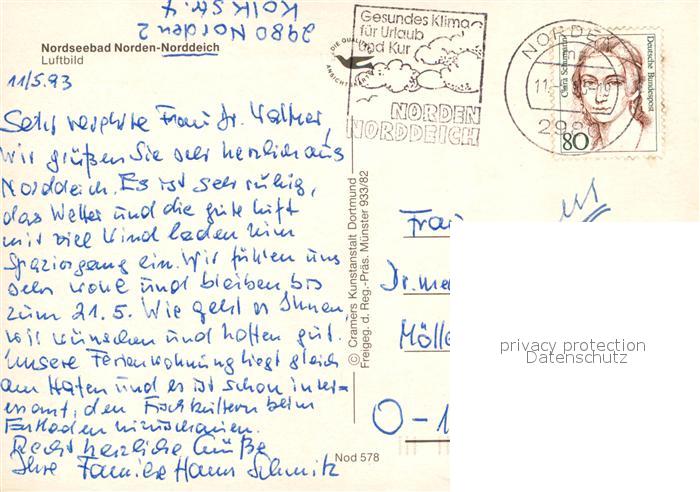 2980 Norden 2
Kolkstr. 7
Nordseebad Norden-Norddeich
Luftbild
11/5.93
Sehr verehrte Frau Dr. Wallner,
wir grüßen Sie sehr herzlich aus
Norddeich. Es ist sehr ruhig,
das Wetter und die gute Luft
mit viel Wind laden zum
Spaziergang ein. Wir fühlen uns
sehr wohl und bleiben bis
zum 21.5. Wie geht es Ihnen,
wir wünschen und hoffen gut.
Unsere Ferienwohnung liegt gleich
am Hafen und es ist schon inter=
essant, den Fischkuttern beim
Entladen zuzuschauen.
Recht herzliche Grüße
Ihre Familie Hans Schmitz
DIE QUALITÄTS
ANSICHTSKARTE
Gesundes Klima
für Urlaub
und Kur
NORDEN
NORDDEICH
NORDEN
11.-5.93-19
298
Clara Schumann
Deutsche Bundespost
80
© Cramers Kunstanstalt Dortmund
Freigeg. d. Reg.-Präs. Münster 933/82
Frau
Dr. me
Mölle
O-1
Nod 578
privacy protection
Datenschutz